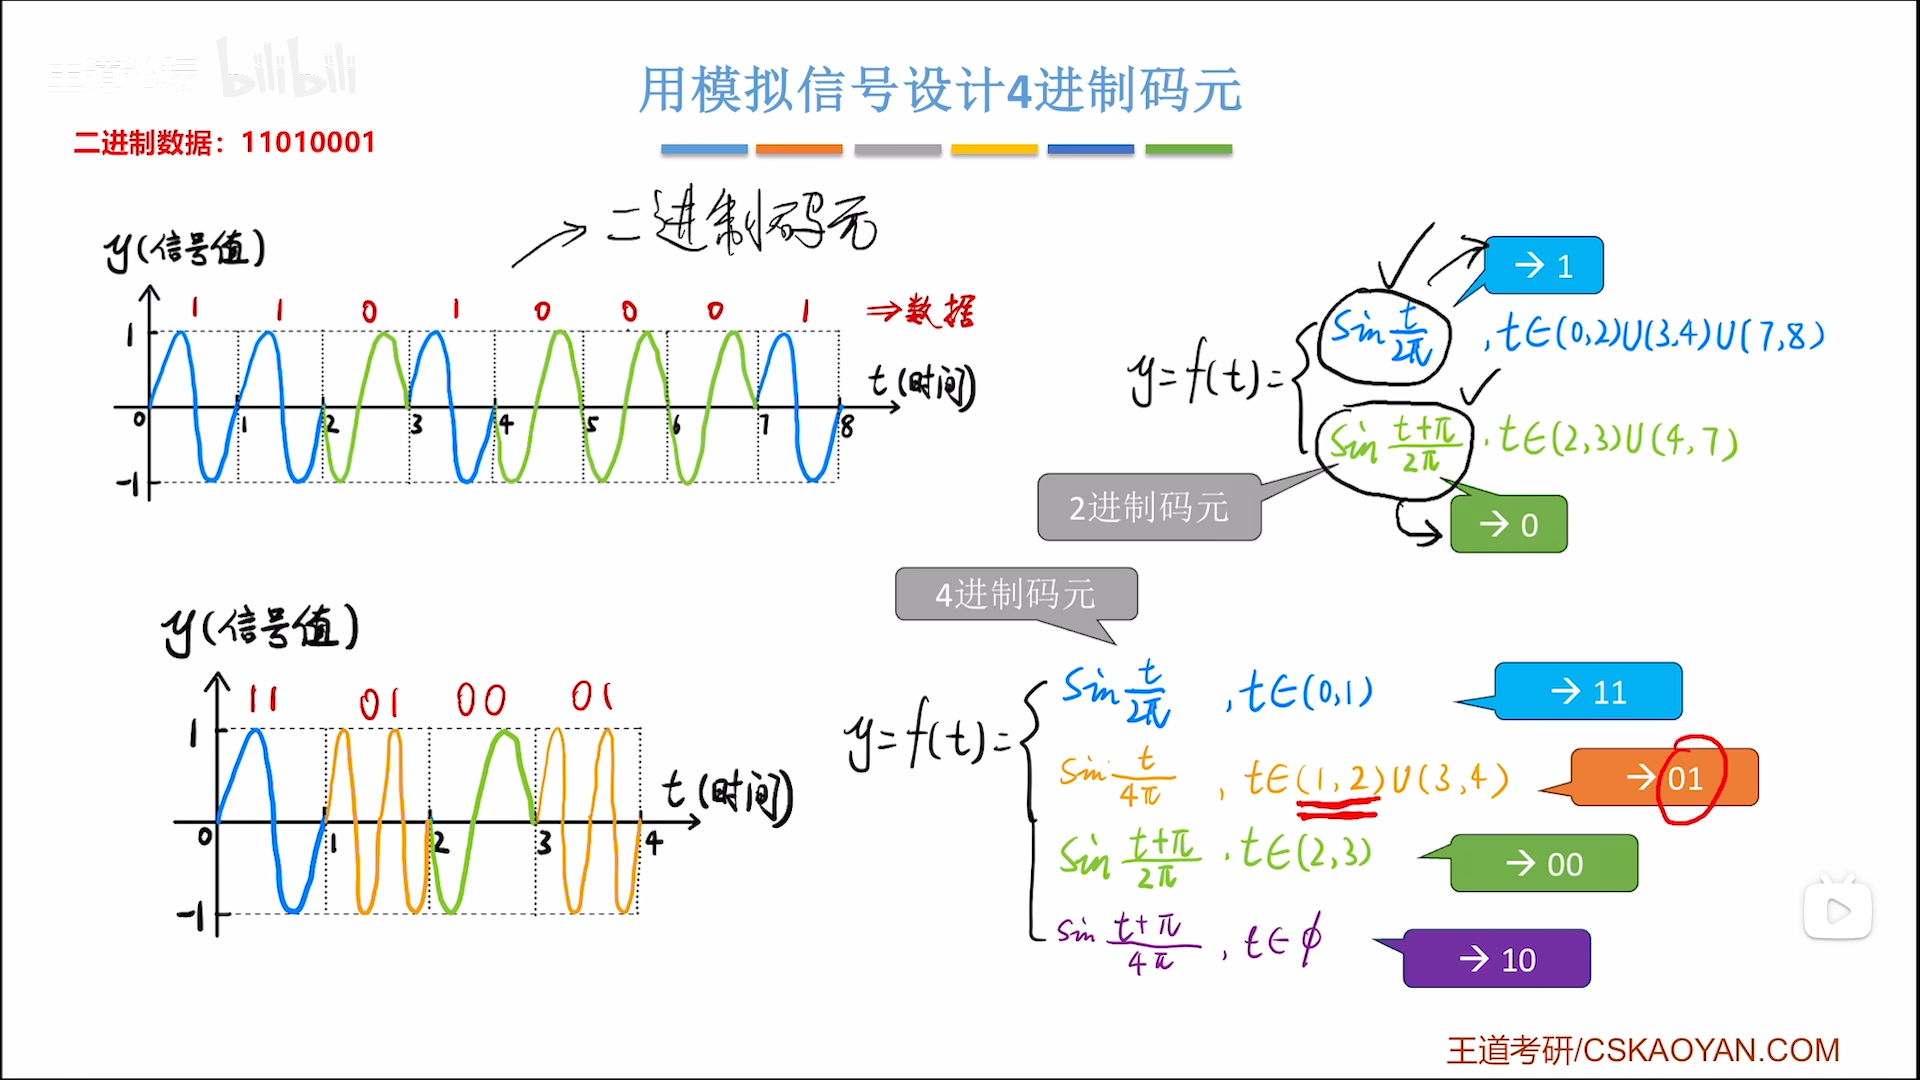 王道论坛 bilibili
用模拟信号设计4进制码元
二进制数据：11010001
→ 二进制码元
y(信号值)
1 1 0 1 0 0 0 1 ⇒数据
1
t(时间)
0 1 2 3 4 5 6 7 8
-1
→ 1
y=f(t)= { sin t/2π , t∈(0,2)∪(3,4)∪(7,8)
sin (t+π)/2π , t∈(2,3)∪(4,7)
2进制码元
→ 0
4进制码元
y(信号值)
11 01 00 01
1
t(时间)
0 1 2 3 4
-1
y=f(t)= { sin t/2π , t∈(0,1) → 11
sin t/4π , t∈(1,2)∪(3,4) → 01
sin (t+π)/2π , t∈(2,3) → 00
sin (t+π)/4π , t∈ϕ → 10
王道考研/CSKAOYAN.COM